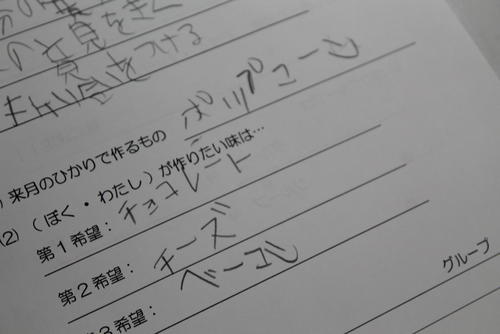 の意見をきく
をつける
来月のひかりで作るもの ポップコーン
(2) (ぼく・わたし)が作りたい味は…
第1希望: チョコレート
第2希望: チーズ
3希望: ベーコン
グループ